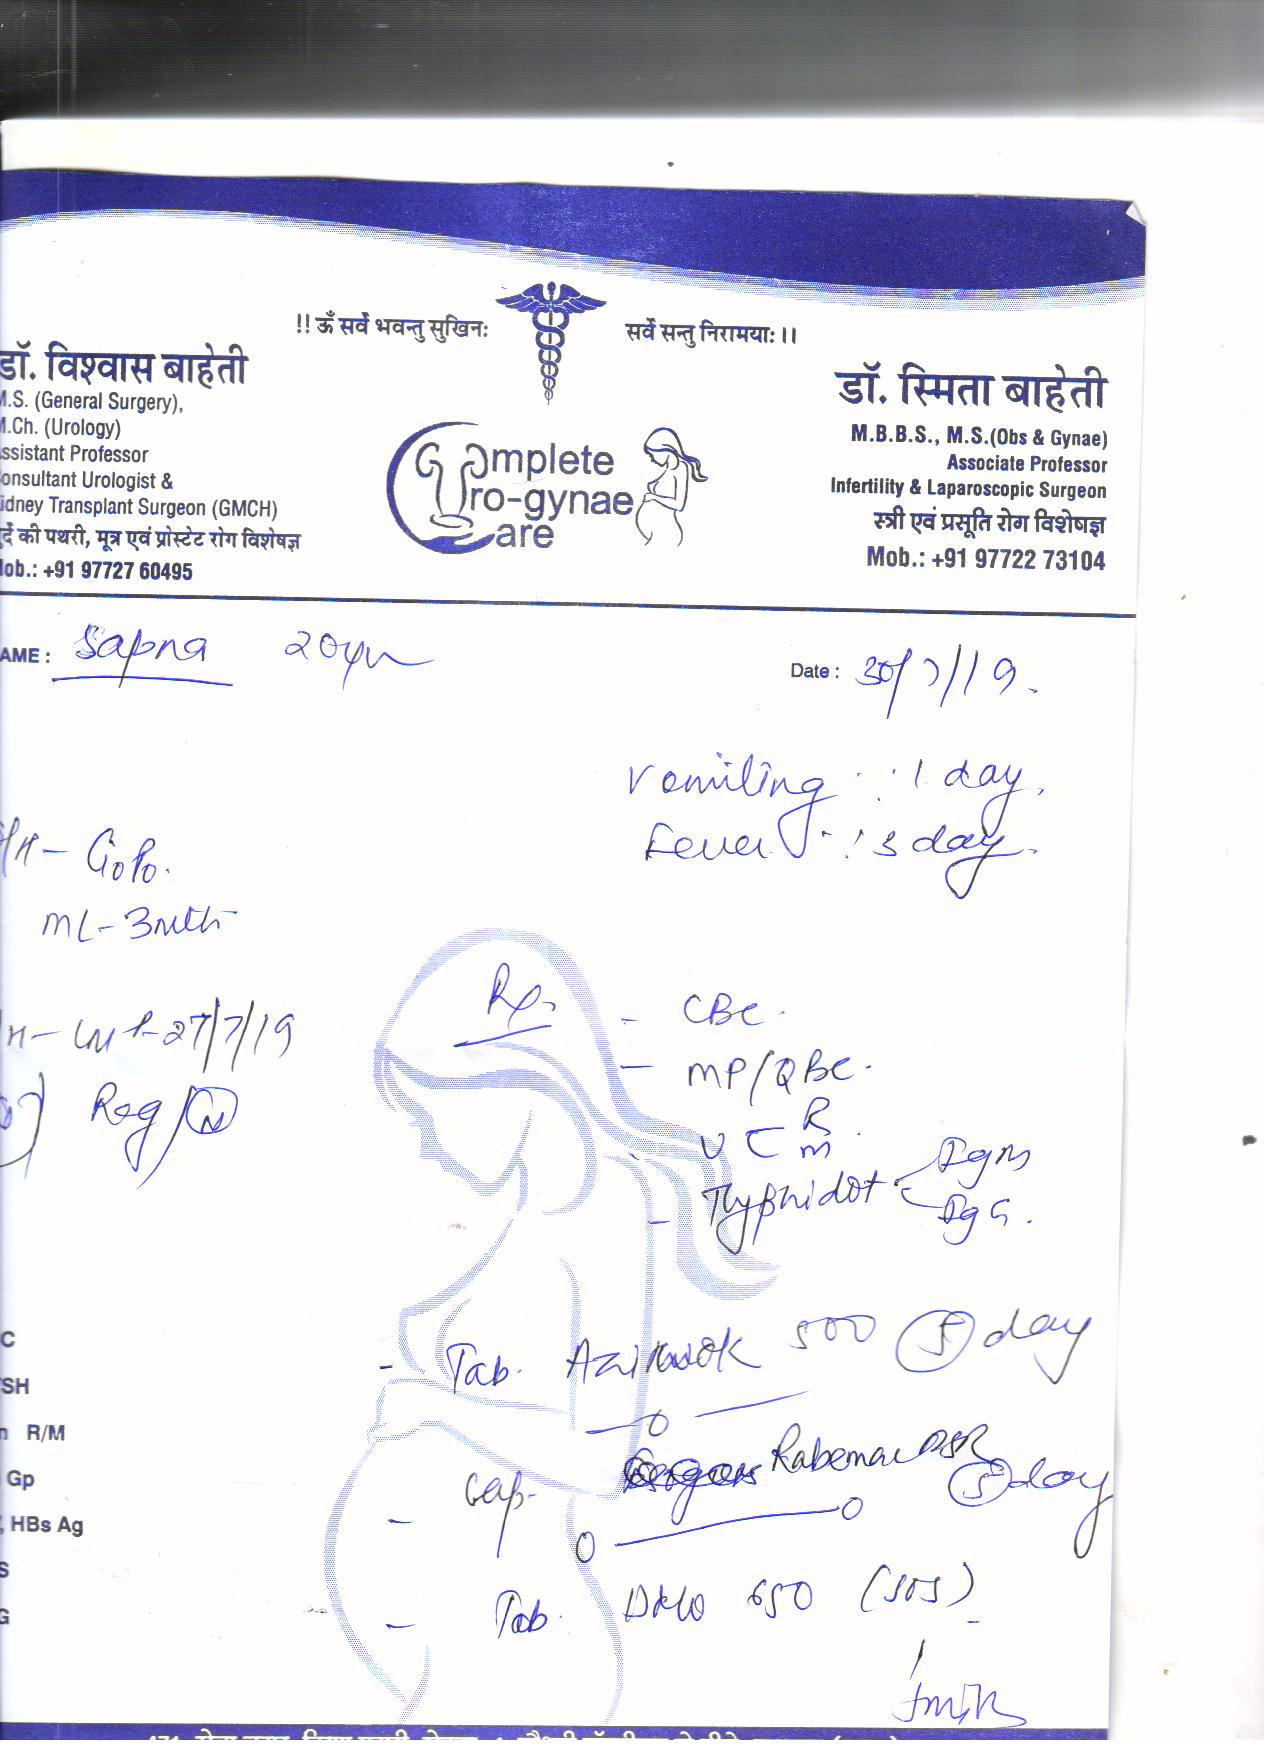 !! ॐ सर्वे भवन्तु सुखिनः सर्वे सन्तु निरामयाः !!
डॉ. विश्वास बाहेती
.S. (General Surgery),
.Ch. (Urology)
ssistant Professor
onsultant Urologist &
idney Transplant Surgeon (GMCH)
र्दे की पथरी, मूत्र एवं प्रोस्टेट रोग विशेषज्ञ
ob.: +91 97727 60495
Complete
Uro-gynae
Care
डॉ. स्मिता बाहेती
M.B.B.S., M.S.(Obs & Gynae)
Associate Professor
Infertility & Laparoscopic Surgeon
स्त्री एवं प्रसूति रोग विशेषज्ञ
Mob.: +91 97722 73104
AME : Sapna 20yr
Date : 30/7/19.
Vomiting : 1 day.
Fever : 3 day.
/H - G0P0.
ML - 3mth
/H - LMP - 27/7/19
Reg/N
Rx.
- CBC.
- MP/QBC.
- U C R/M
- Typhidot IgM
IgG.
- Tab. 500 5 day
- Cap. DSR 5 day
- Tab. 650 (SOS)
C
SH
n R/M
Gp
, HBs Ag
S
G